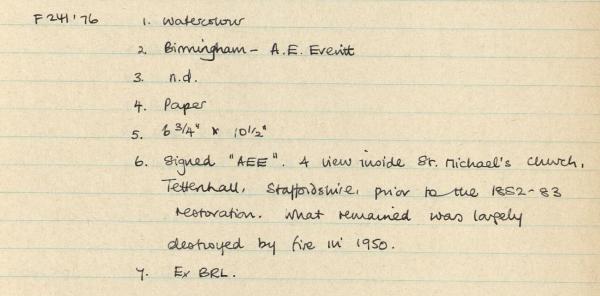 F241'76 1. Watercolour
2. Birmingham - A.E. Everitt
3. n.d.
4. Paper
5. 6 3/4" x 10 1/2"
6. Signed "AEE". A view inside St. Michael's Church,
Tettenhall, Staffordshire, prior to the 1882-83
restoration. What remained was largely
destroyed by fire in 1950.
7. Ex BRL.